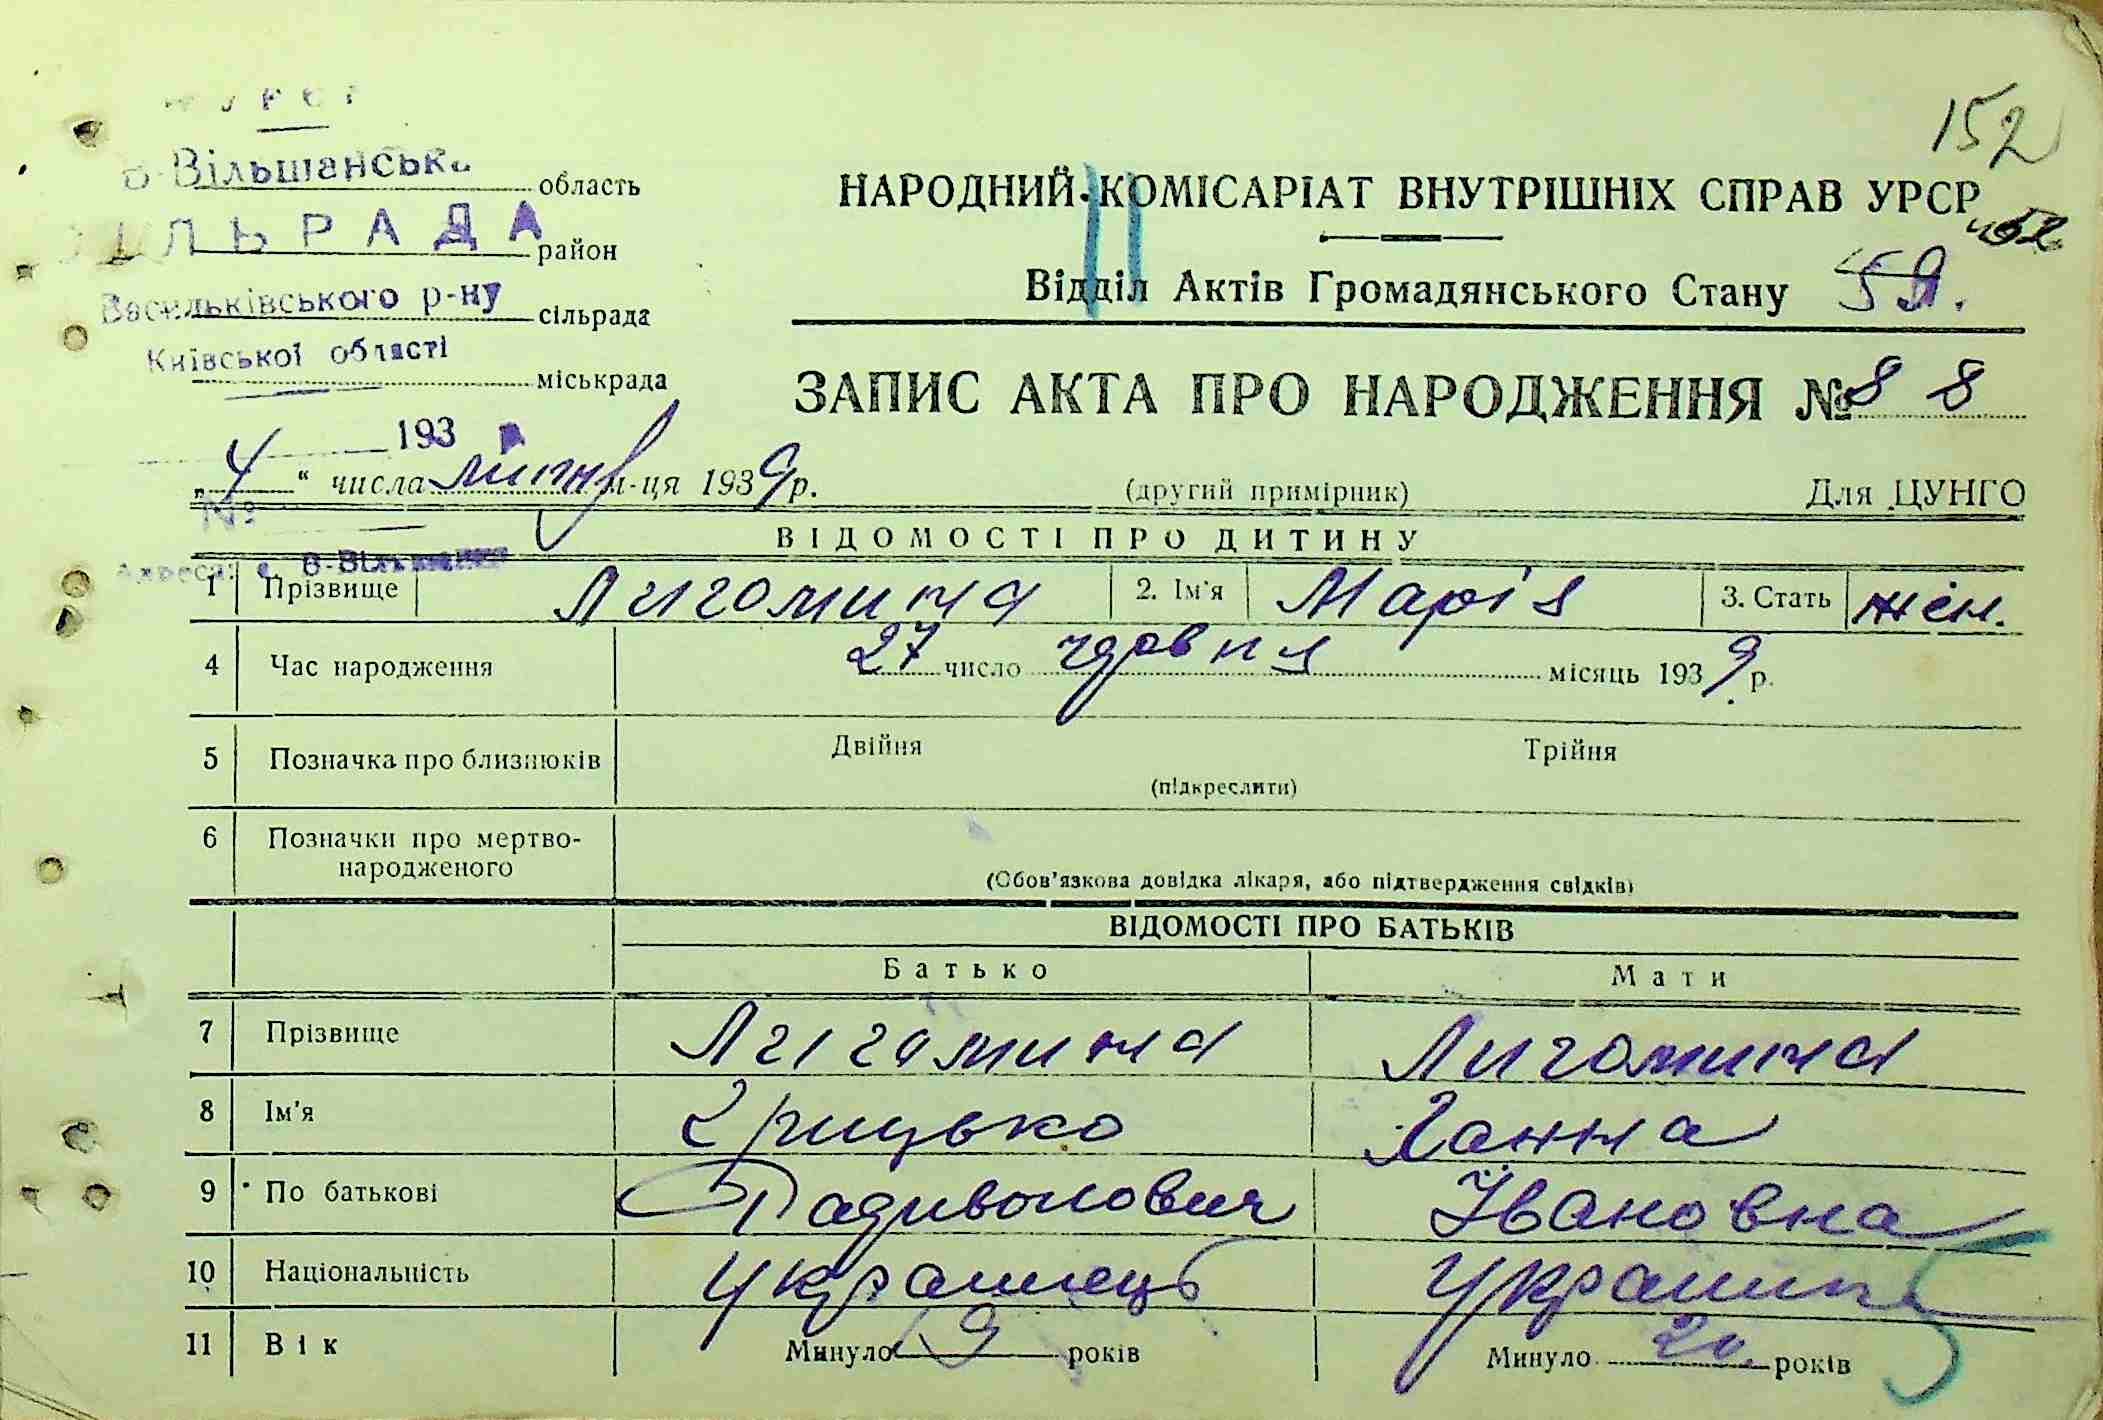 152
УРСР
В-Вільшанська область
СІЛЬРАДА район
Васильківського р-ну сільрада
Київської області міськрада
193
НАРОДНИЙ КОМІСАРІАТ ВНУТРІШНІХ СПРАВ УРСР
Відділ Актів Громадянського Стану 59.
ЗАПИС АКТА ПРО НАРОДЖЕННЯ № 88
„4“ числа липня м-ця 1939 р. (другий примірник) Для ЦУНГО
№
ВІДОМОСТІ ПРО ДИТИНУ
Адреса: с. В-Вільшанка
1 Прізвище Лигомина 2. Ім'я Марія 3. Стать жін.
4 Час народження 27 число червня місяць 1939 р.
5 Позначка про близнюків Двійня Трійня
(підкреслити)
6 Позначки про мертво-
народженого
(Обов'язкова довідка лікаря, або підтвердження свідків)
ВІДОМОСТІ ПРО БАТЬКІВ
Батько Мати
7 Прізвище Лигомина Лигомина
8 Ім'я Грицько Ганна
9 По батькові Радивонович Івановна
10 Національність Українець Українка
11 Вік Минуло 19 років Минуло 20 років